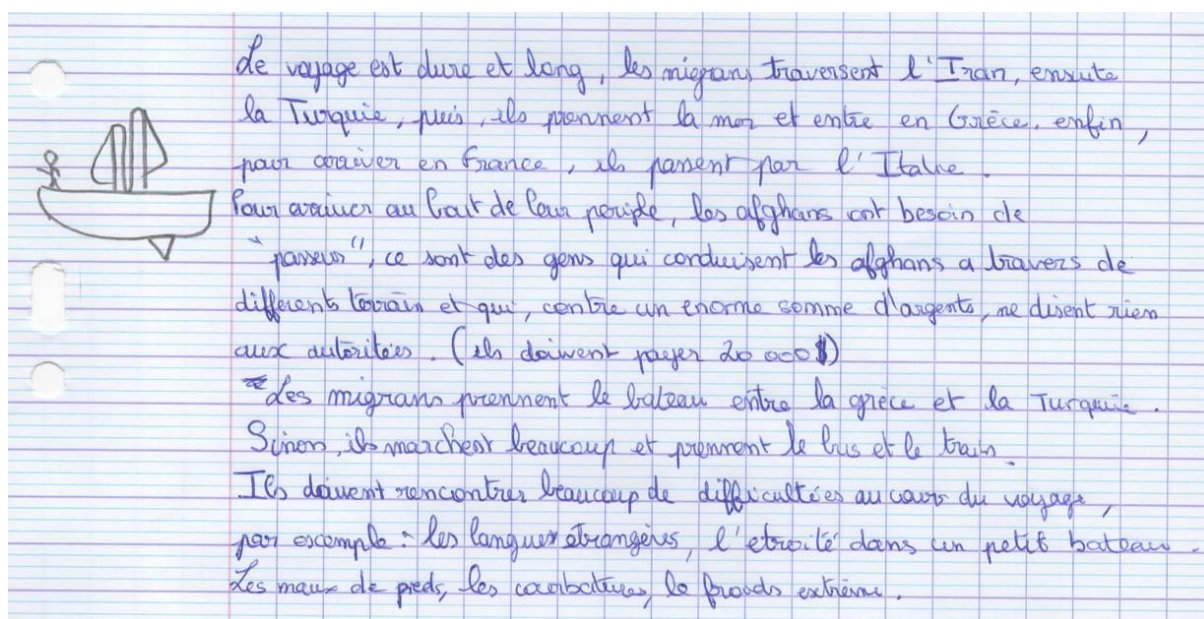 Le voyage est dure et long, les migrans traversent l'Iran, ensuite
la Turquie, puis, ils prennent la mer et entre en Grèce. enfin,
pour arriver en France, ils passent par l'Italie.
Pour arriver au bout de leur periple, les afghans ont besoin de
"passeurs", ce sont des gens qui conduisent les afghans a travers de
différents terrain et qui, contre un enorme somme d'argents, ne disent rien
aux autoritées. (ils doivent payer 20 000$)
Les migrans prennent le bateau entre la grèce et la Turquie.
Sinon, ils marchent beaucoup et prennent le bus et le train.
Ils doivent rencontrer beaucoup de difficultées au cours du voyage,
par exemple : les langues étrangères, l'etroité dans un petit bateau.
Les maux de pieds, les courbatures, le froids extrème.